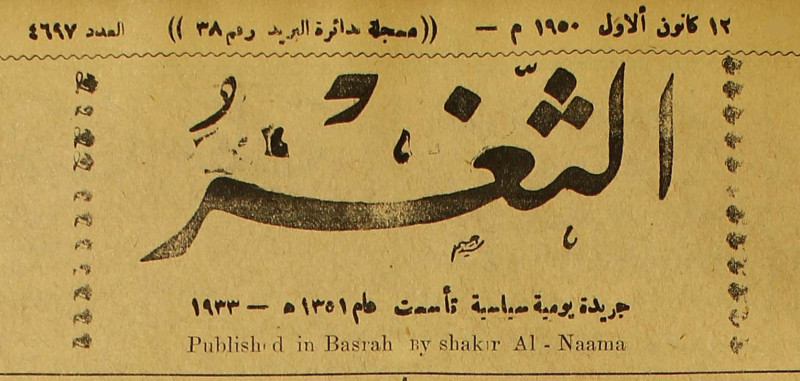 ١٢ كانون ألاول ١٩٥٠ م — ((مسجلة بدائرة البريد رقم ٣٨)) العدد ٤٦٩٧
الثّغرُ
جريدة يومية سياسية تأسست عام ١٣٥١ ه — ١٩٣٣
Published in Basrah By shakir Al - Naama